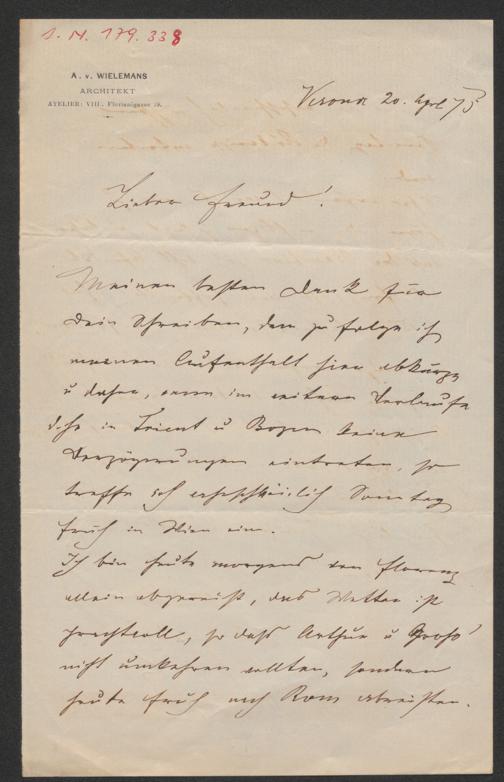 I. N. 179.338
A. v. WIELEMANS
ARCHITEKT
ATELIER: VIII., Floriangasse 19.
Verona 20. April 75
Lieber Freund!
Meinen besten Dank für
Dein Schreiben, dem zu folge ich
meinen Aufenthalt hier abkürze
u daher, wenn im weitern Verlaufe
d. h. in Trient u Bozen keine
Verzögerungen eintreten, so
treffe ich Sonntag
früh in Wien ein.
Ich bin heute morgens von Florenz
allein abgereist, das Wetter ist
prachtvoll, so daß Arthur u
nicht umkehren wollten, sondern
heute früh nach Rom abreisten.